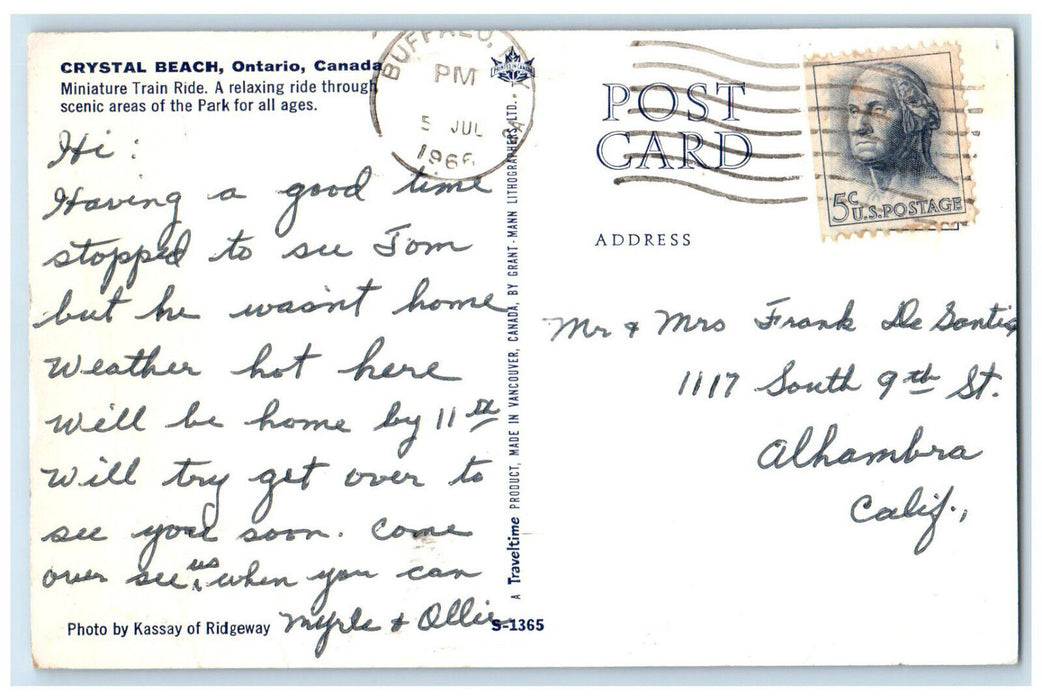 CRYSTAL BEACH, Ontario, Canada
Miniature Train Ride. A relaxing ride through
scenic areas of the Park for all ages.
Hi:
Having a good time
stopped to see Tom
but he wasn't home
Weather hot here
Will be home by 11th
Will try get over to
see you soon. Come
over see us when you can
Myrle & Ollie
Photo by Kassay of Ridgeway
S-1365
A Traveltime PRODUCT, MADE IN VANCOUVER, CANADA, BY GRANT-MANN LITHOGRAPHERS LTD.
PRINTED IN CANADA
BUFFALO, N.Y.
PM
5 JUL
1966
POST
CARD
5c
U.S. POSTAGE
ADDRESS
Mr & Mrs Frank De Santis
1117 South 9th St.
Alhambra
Calif.,